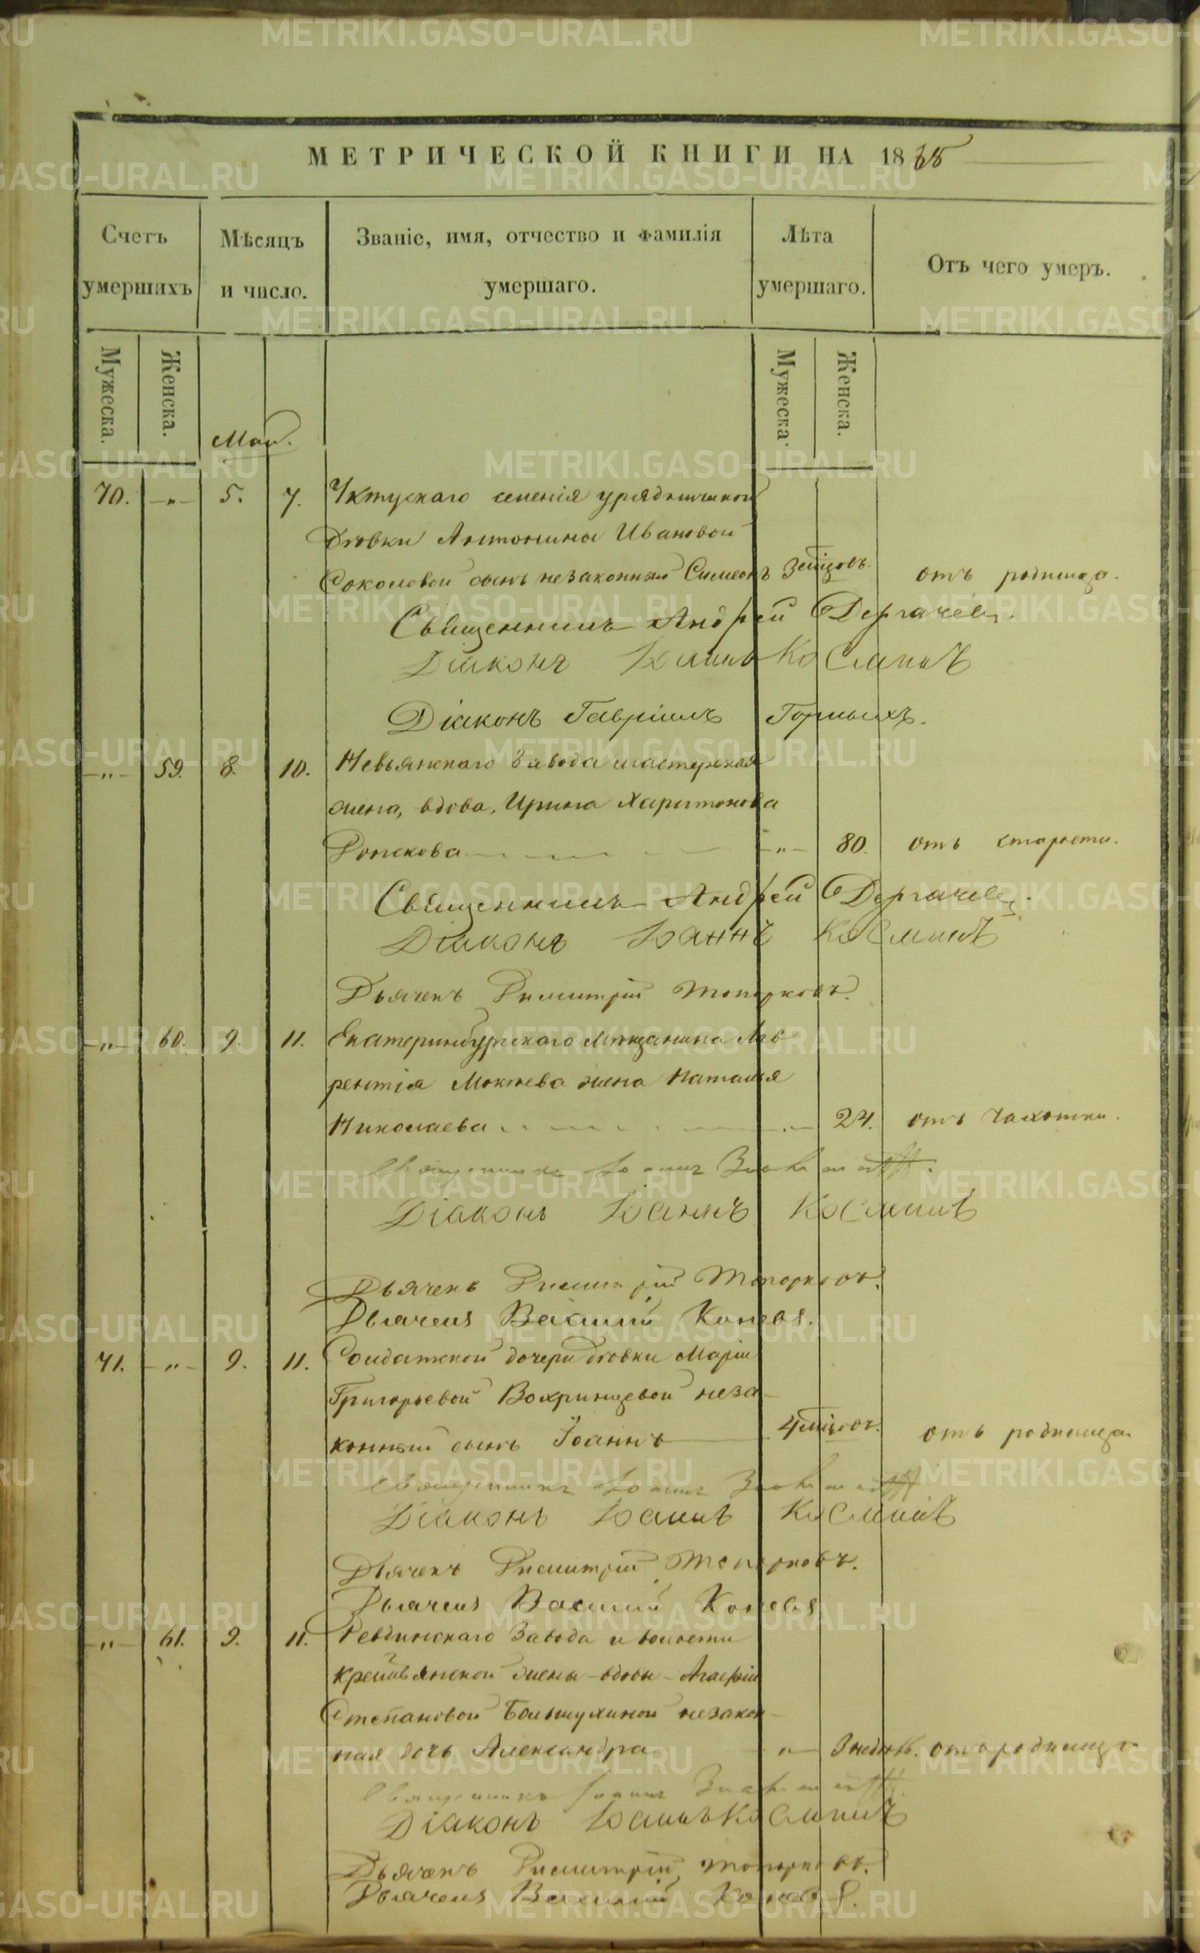 МЕТРИЧЕСКОЙ КНИГИ НА 18
Счетъ умершихъ
Мѣсяцъ и число.
Званіе, имя, отчество и фамилія умершаго.
Лѣта умершаго.
Отъ чего умеръ.
Мужеска.
Женска.
Мужеска.
Женска.
Маи.
70. -"- 5. 7. Уктускаго селенія
дѣвки Антонины Ивановой
Соколовой сынъ незаконный Симеонъ 3 мѣсяцовъ отъ родимца.
Священникъ Андрей Дергачевъ.
Діаконъ Іоаннъ Косминъ
Діаконъ Гавріилъ Горныхъ.
-"- 59. 8. 10. Невьянскаго Завода мастерская
жена, вдова, Ирина Харитонова
-"- 80. отъ старости.
Священникъ Андрей Дергачевъ.
Діаконъ Іоаннъ Косминъ
Дьячекъ Димитрій Топорковъ.
-"- 60. 9. 11. Екатеринбургскаго Мѣщанина Лав
рентія Мокѣева жена Наталья
Николаева -"- 24. отъ чахотки.
Священникъ Іоаннъ
Діаконъ Іоаннъ Косминъ
Дьячекъ Димитрій Топорковъ.
Дьячекъ Василій Коневъ.
71. -"- 9. 11. Солдатской дочери дѣвки Маріи
Григорьевой Вохринцевой неза-
конный сынъ Іоаннъ 4 мѣсяцовъ. отъ родимца.
Священникъ Іоаннъ
Діаконъ Іоаннъ Косминъ
Дьячекъ Димитрій Топорковъ.
Дьячекъ Василій Коневъ
-"- 61. 9. 11. Ревдинскаго Завода и волости
жены вдовы
Степановой незакон-
ная дочь Александра -"- 3 недѣль. отъ родимца
Священникъ Іоаннъ
Діаконъ Іоаннъ Косминъ
Дьячекъ Димитрій Топорковъ.
Дьячекъ Василій Коневъ.
METRIKI.GASO-URAL.RU